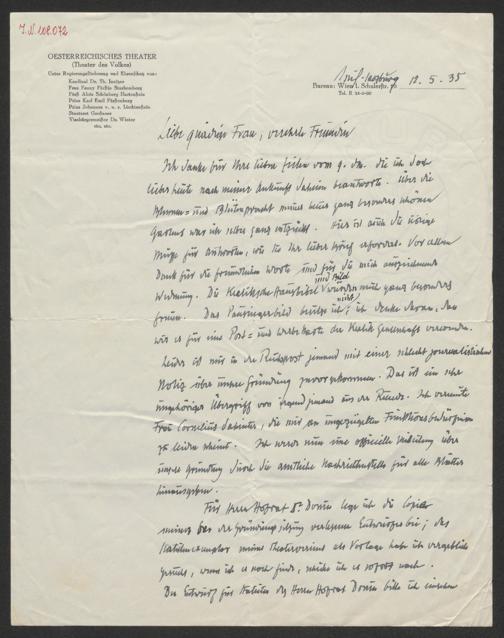 J.N. 202.072
OESTERREICHISCHES THEATER
(Theater des Volkes)
Unter Regierungsförderung und Ehrenschutz von:
Kardinal Dr. Th. Innitzer
Frau Fanny Fürstin Starhemberg
Fürst Alois Schönburg Hartenstein
Prinz Karl Emil Fürstenberg
Prinz Johannes v. u. z. Liechtenstein
Staatsrat
Vizebürgermeister Dr. Winter
etc. etc.
Salzburg 12. 5. 35
Bureau: Wien I. Schulerstr.
Tel. R
Liebe gnädige Frau, verehrte Freundin
Ich danke für Ihre lieben Zeilen vom 9. ds. die ich doch
lieber heute nach meiner Ankunft daheim beantworte. Über die
Blumen- und Blütenpracht meines heuer ganz besonders schönen
Gartens war ich selber ganz entzückt. Hier ist auch die nötige
Muße zur Antwort, wie sie Ihr lieber Brief erfordert. Vor allem
Dank für die freundlichen Worte und für die mich auszeichnende
Widmung. Die Kralik'sche Hausbibel und Bild würden mich ganz besonders
freuen. Das bild besitze ich nicht; ich denke daran, dass
wir es für eine Post- und Werbekarte der Kralik Gesellschaft verwenden.
Leider ist mir in der Reichspost jemand mit einer schlecht journalistischen
Notiz über unsere Gründung zuvorgekommen. Das ist ein sehr
ungehöriger Übergriff von irgend jemand aus der Runde. Ich vermute
Frau Cornelius, die mir an ungezügeltem Funktionsbedürfnis
zu leiden scheint. Ich werde nun eine offizielle Meldung über
unsere Gründung durch die amtliche Nachrichtenstelle für alle Blätter
hinausgeben.
Für Herrn Hofrat Dr. Donin lege ich die Copie
meines bei der Gründungssitzung verlesenen Entwurfes bei; das
Statutenexemplar meines Theatervereins als Vorlage habe ich vergeblich
gesucht, wenn ich es noch finde, schicke ich es sofort nach.
Den Entwurf für Statuten des Herrn Hofrat Donin bitte ich